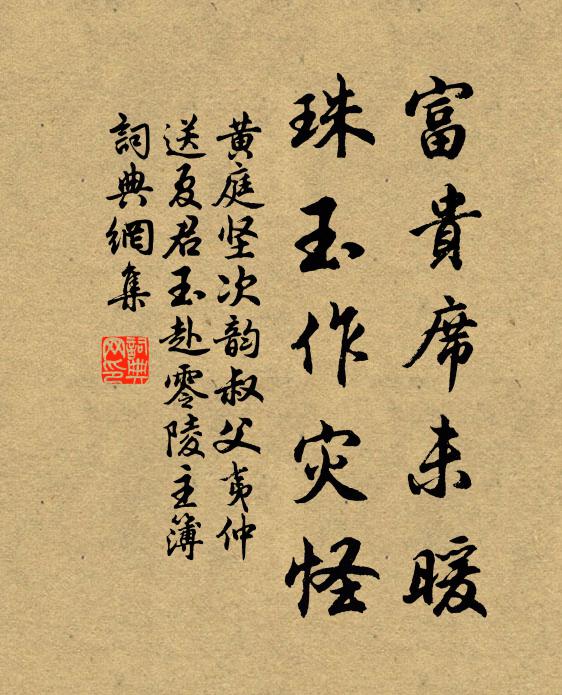 富貴席未暖
珠玉作灾怪
黄庭坚次韵叔父夷仲
送夏君玉赴零陵主簿
詞典網集
詞典網印